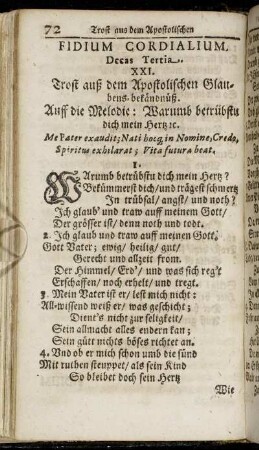 72 Trost aus dem Apostolischen
FIDIUM CORDIALIUM,
Decas Tertia.
XXI.
Trost auß dem Apostolischen Glau-
bens-bekändnüß.
Auff die Melodie: Warumb betrübstu
dich mein Hertz ꝛc.
Me Pater exaudit; Nati hocq; in Nomine, Credo,
Spiritus exhilarat; Vita futura beat.
1.
WArumb betrübstu dich mein Hertz?
Bekümmerst dich/ und trägest schmertz
In trübsal/ angst/ und noth?
Ich glaub' und traw auff meinem Gott/
Der grösser ist/ denn noth und todt.
2. Ich glaub und traw auff meinen Gott/
Gott Vater; ewig/ heilig/ gut/
Gerecht und allzeit from.
Der Himmel/ Erd'/ und was sich reg't
Erschaffen/ noch erhelt/ und tregt.
3. Mein Vater ist er/ lest mich nicht:
All-wissend weiß er/ was geschicht;
Dient's nicht zur seligkeit/
Sein allmacht alles endern kan;
Sein gütt nichts böses richtet an.
4. Und ob er mich schon umb die sünd
Mit ruthen steuppet/ als sein Kind
So bleibet doch sein Hertz
Wie